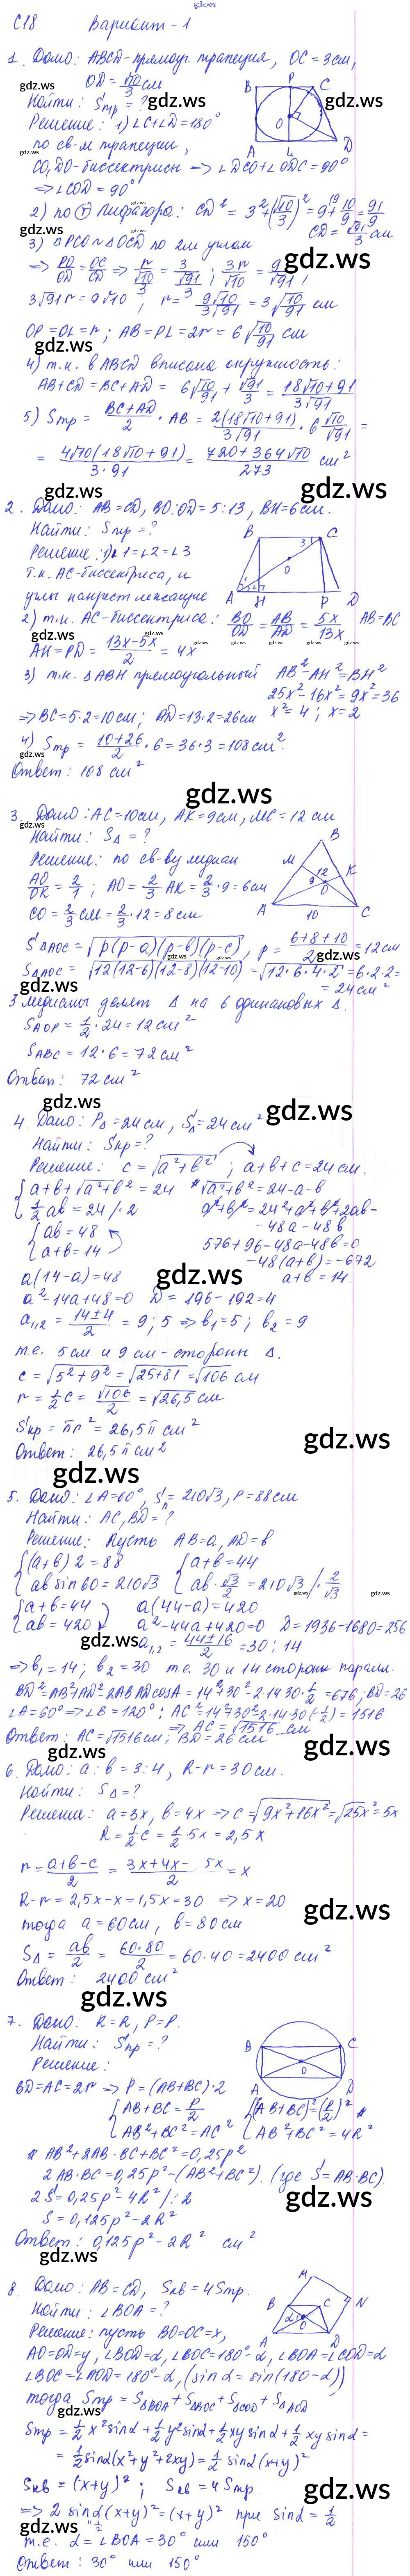 gdz.ws
С18 Вариант-1
1. Дано: ABCD-прямоуг. трапеция, OC=3см,
OD=√10/3 см
Найти: Sтр=?
Решение: 1) ∠C+∠D=180°
по св-м трапеции,
CO, DO-биссектрисы ⇒ ∠DCO+∠ODC=90°
⇒ ∠COD=90°
2) по т Пифагора: CD²=3²+(√10/3)²=9+10/9=91/9
CD=√91/3 см
3) △PCO~△OCD по 2м углам
⇒ PO/OD=OC/CD ⇒
3√91r=9√10; r=9√10/3√91=3√10/91 см
OP=OL=r; AB=PL=2r=6√10/91 см
4) т.к. в ABCD вписана окружность:
AB+CD=BC+AD=6√10/91+√91/3=18√10+91/3√91
5) Sтр=BC+AD/2·AB=2(18√10+91)/3√91·6√10/√91=
=4√10(18√10+91)/3·91=720+364√10/273 см²
2. Дано: AB=CD, BO:OD=5:13, BH=6см.
Найти: Sтр=?
Решение: 1) ∠1=∠2=∠3
т.к. AC-биссектриса, и
углы накрест лежащие
2) т.к. AC-биссектриса: BO/OD=AB/AD=5x/13x AB=BC
AH=PD=13x-5x/2=4x
3) т.к. △ABH прямоугольный AB²-AH²=BH²
25x²-16x²=9x²=36
⇒ BC=5·2=10см; AD=13·2=26см x²=4; x=2
4) Sтр=10+26/2·6=36·3=108см².
Ответ: 108 см²
3. Дано: AC=10см, AK=9см, MC=12 см
Найти: S△=?
Решение: по св-ву медиан
AO/OK=2/1; AO=2/3AK=2/3·9=6см
CO=2/3CM=2/3·12=8см
S△AOC=√p(p-a)(p-b)(p-c), p=6+8+10/2=12см
S△AOC=√12(12-6)(12-8)(12-10)=√12·6·4·2=6·2·2=
=24см²
3 медианы делят △ на 6 одинаковых △.
SAOP=1/2·24=12см²
SABC=12·6=72см²
Ответ: 72см²
4. Дано: P△=24см, S△=24см²
Найти: Sкр=?
Решение: c=√a²+b²; a+b+c=24см.
{a+b+√a²+b²=24 *√a²+b²=24-a-b
{1/2ab=24/·2 a²+b²=24²+a²+b²+2ab-
-48a-48b
{ab=48 576+96-48a-48b=0
{a+b=14 -48(a+b)=-672
a(14-a)=48 a+b=14
a²-14a+48=0 D=196-192=4
a1,2=14±4/2=9;5 ⇒ b1=5; b2=9
т.е. 5см и 9см-стороны △.
c=√5²+9²=√25+81=√106 см
r=1/2c=√106/2=√26,5см
Sкр=πr²=26,5π см²
Ответ: 26,5π см²
5. Дано: ∠A=60°, Sп=210√3, P=88см
Найти: AC, BD=?
Решение: Пусть AB=a, AD=b
{(a+b)2=88 {a+b=44
{ab sin60=210√3 {ab·√3/2=210√3/·2/√3
{a+b=44 a(44-a)=420
{ab=420 a²-44a+420=0 D=1936-1680=256
a1,2=44±16/2=30;14
⇒ b1=14; b2=30 т.е. 30 и 14 стороны паралл.
BD²=AB²+AD²-2AB·AD cosA=14²+30²-2·14·30·1/2=676; BD=26
∠A=60° ⇒ ∠B=120°; AC²=14²+30²-2·14·30(-1/2)=1516
⇒ AC=√1516 см
Ответ: AC=√1516см; BD=26см
6. Дано: a:b=3:4, R-r=30см.
Найти: S△=?
Решение: a=3x, b=4x ⇒ c=√9x²+16x²=√25x²=5x
R=1/2c=1/2·5x=2,5x
r=a+b-c/2=3x+4x-5x/2=x
R-r=2,5x-x=1,5x=30 ⇒ x=20
тогда a=60см, b=80см
S△=ab/2=60·80/2=60·40=2400 см²
Ответ: 2400см²
7. Дано: R=R, P=P.
Найти: Sпр=?
Решение:
BD=AC=2r ⇒ P=(AB+BC)·2
{AB+BC=P/2 {(AB+BC)²=(P/2)² *
{AB²+BC²=AC² {AB²+BC²=4R²
* AB²+2AB·BC+BC²=0,25p²
2AB·BC=0,25p²-(AB²+BC²). (где S=AB·BC).
2S=0,25p²-4R²/:2
S=0,125p²-2R²
Ответ: 0,125p²-2R² см²
8. Дано: AB=CD, Sкв=4Sтр.
Найти: ∠BOA=?
Решение: пусть BO=OC=x,
AO=OD=y, ∠BOD=α, ∠BOC=180°-α, ∠BOA=∠COD=α
∠BOC=∠AOD=180°-α, (sinα=sin(180-α))
тогда Sтр=S△BOA+S△BOC+S△COD+S△AOD
Sтр=1/2x²sinα+1/2y²sinα+1/2xysinα+1/2xysinα=
=1/2sinα(x²+y²+2xy)=1/2sinα(x+y)²
Sкв=(x+y)²; Sкв=4Sтр
⇒ 2sinα(x+y)²=(x+y)² при sinα=1/2
т.е. α=∠BOA=30° или 150°
Ответ: 30° или 150°